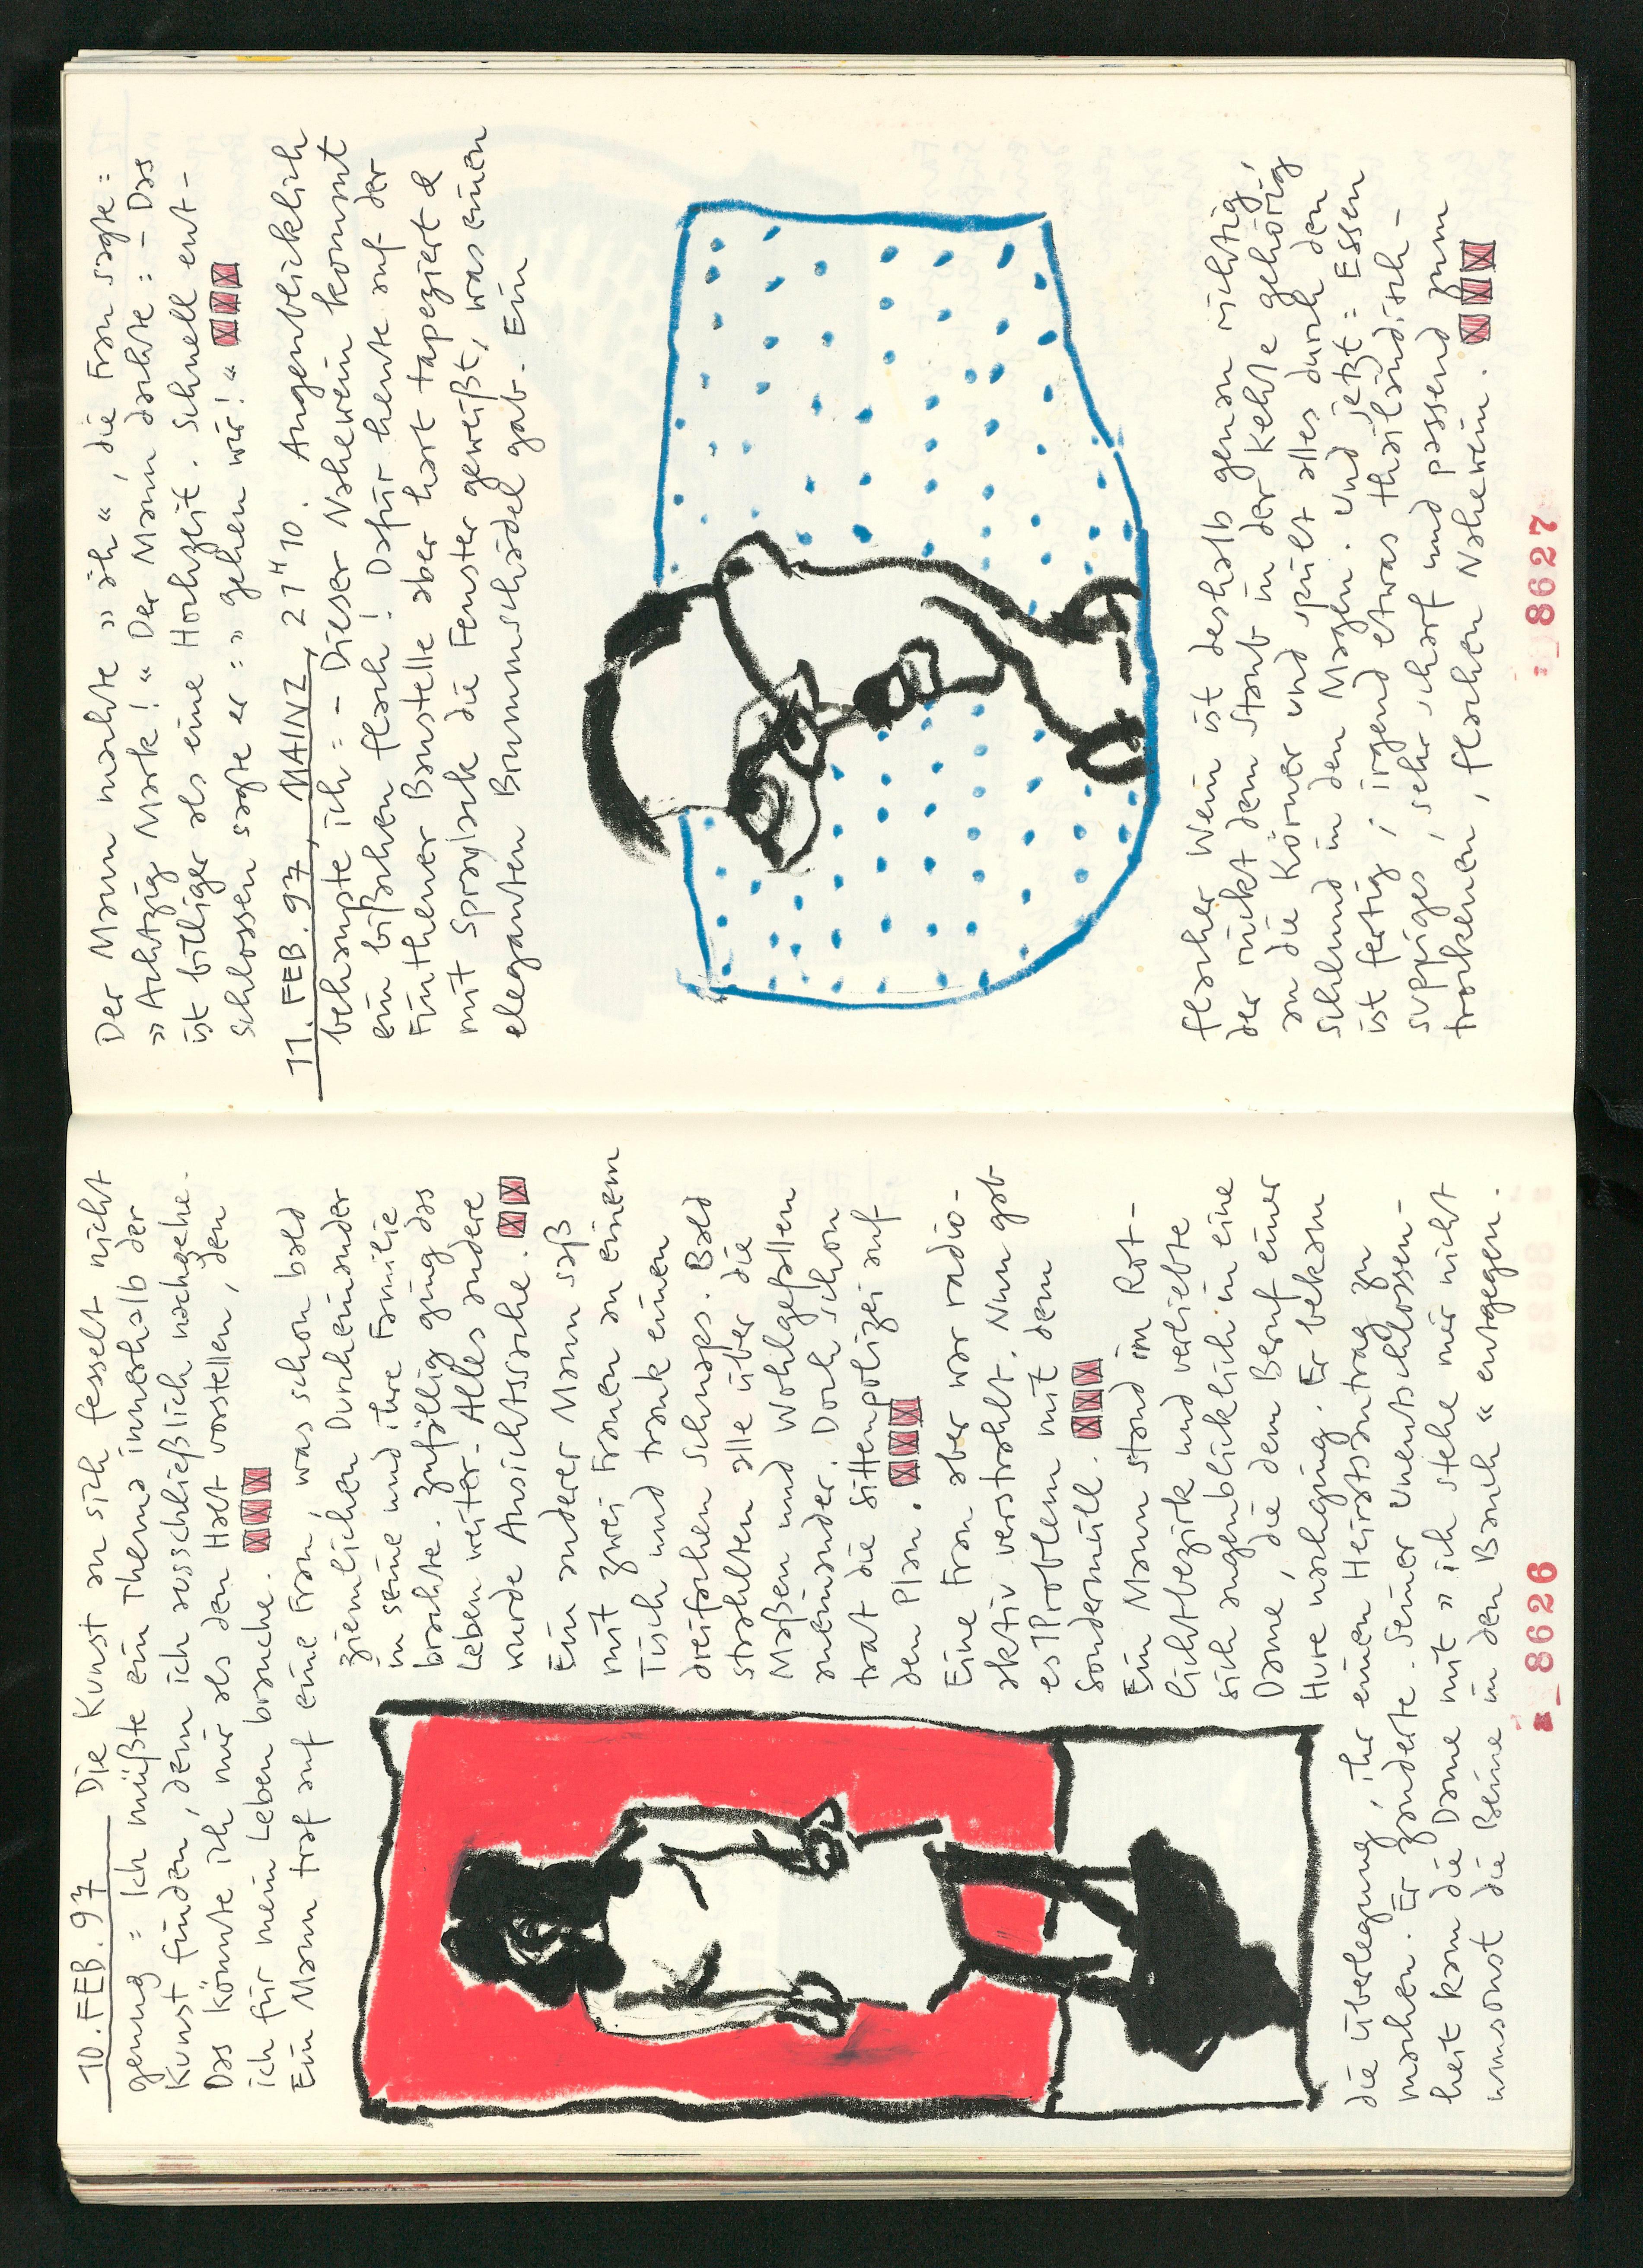 10. FEB. 97 Die Kunst an sich fesselt nicht
genug = Ich müßte ein Thema innerhalb der
Kunst finden, dem ich ausschließlich nachgehe.
Das könnte ich mir als den Halt vorstellen, den
ich für mein Leben brauche.
Ein Mann traf auf eine Frau, was schon bald
ziemlichen Durcheinander
in seine und ihre Familie
brachte. Zufällig ging das
Leben weiter. Alles andere
wurde Ansichtssache.
Ein anderer Mann saß
mit zwei Frauen an einem
Tisch und trank einen
dreifachen Schnaps. Bald
strahlten alle über die
Maßen und Wohlgefallen
aneinander. Doch schon
trat die Sittenpolizei auf
den Plan.
Eine Frau aber war radio-
aktiv verstrahlt. Nun gab
es 1 Problem mit dem
Sondermüll.
Ein Mann stand im Rot-
lichtbezirk und verliebte
sich augenblicklich in eine
Dame, die dem Beruf einer
Hure nachging. Er bekam
die Überlegung, ihr einen Heiratsantrag zu
machen. Er zauderte. Seiner Unentschlossen-
heit kam die Dame mit » ich stehe mir nicht
umsonst die Beine in den Bauch « entgegen.
8626
Der Mann machte » äh «, die Frau sagte =
» Achtzig Mark! « Der Mann dachte = - Das
ist billiger als eine Hochzeit. Schnell ent-
schlossen sagte er = » gehen wir! «
11. FEB. 97, MAINZ, 21 H 10. Augenblicklich
behaupte ich = - Dieser Nahewein kommt
ein bißchen flach! Dafür heute auf der
Finthener Baustelle aber hart tapeziert &
mit Spraylack die Fenster geweißt, was einen
eleganten Brummschädel gab. Ein
flacher Wein ist deshalb genau richtig,
der rückt dem Staub in der Kehle gehörig
an die Körner und spült alles durch den
Schlund in den Magen. Und jetzt = Essen
ist fertig, irgend etwas thailändisch-
suppiges, sehr scharf und passend zum
trockenen, flachen Nahewein.
8627